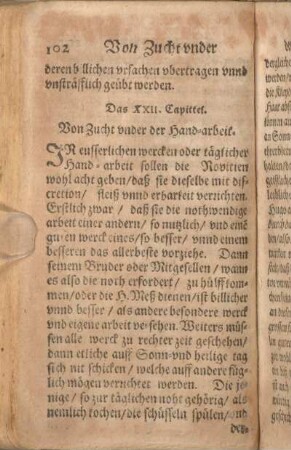 102 Von Zucht vnder
deren billichen vrsachen vbertragen vnnd
vnsträfflich geübt werden.
Das XXII. Capittel.
Von Zucht vnder der Hand-arbeit.
IN eusserlichen wercken oder täglicher
Hand-arbeit sollen die Novitien
wohl acht geben/ daß sie dieselbe mit dis-
cretion/ fleiß vnnd erbarkeit verrichten.
Erstlich zwar / daß sie die nothwendige
arbeit einer andern/ so nutzlich/ vnd
guten werck eines/ so besser / vnnd einem
besseren das allerbeste vorziehe. Dann
seinem Bruder oder Mitgesellen / wann
es also die noth erfordert / zu hülff kom-
men/ oder die H. Meß dienen/ ist billicher
vnnd besser / als andere besondere werck
vnd eigene arbeit versehen. Weiters müs-
sen alle werck zu rechter zeit geschehen/
dann etliche auff Sonn- vnd heilige tag
sich nit schicken/ welche auff andere füg-
lich mögen verrichtet werden. Die je-
nige/ so zur täglichen noht gehörig/ als
nemlich kochen/ die schüsseln spülen/ vnd